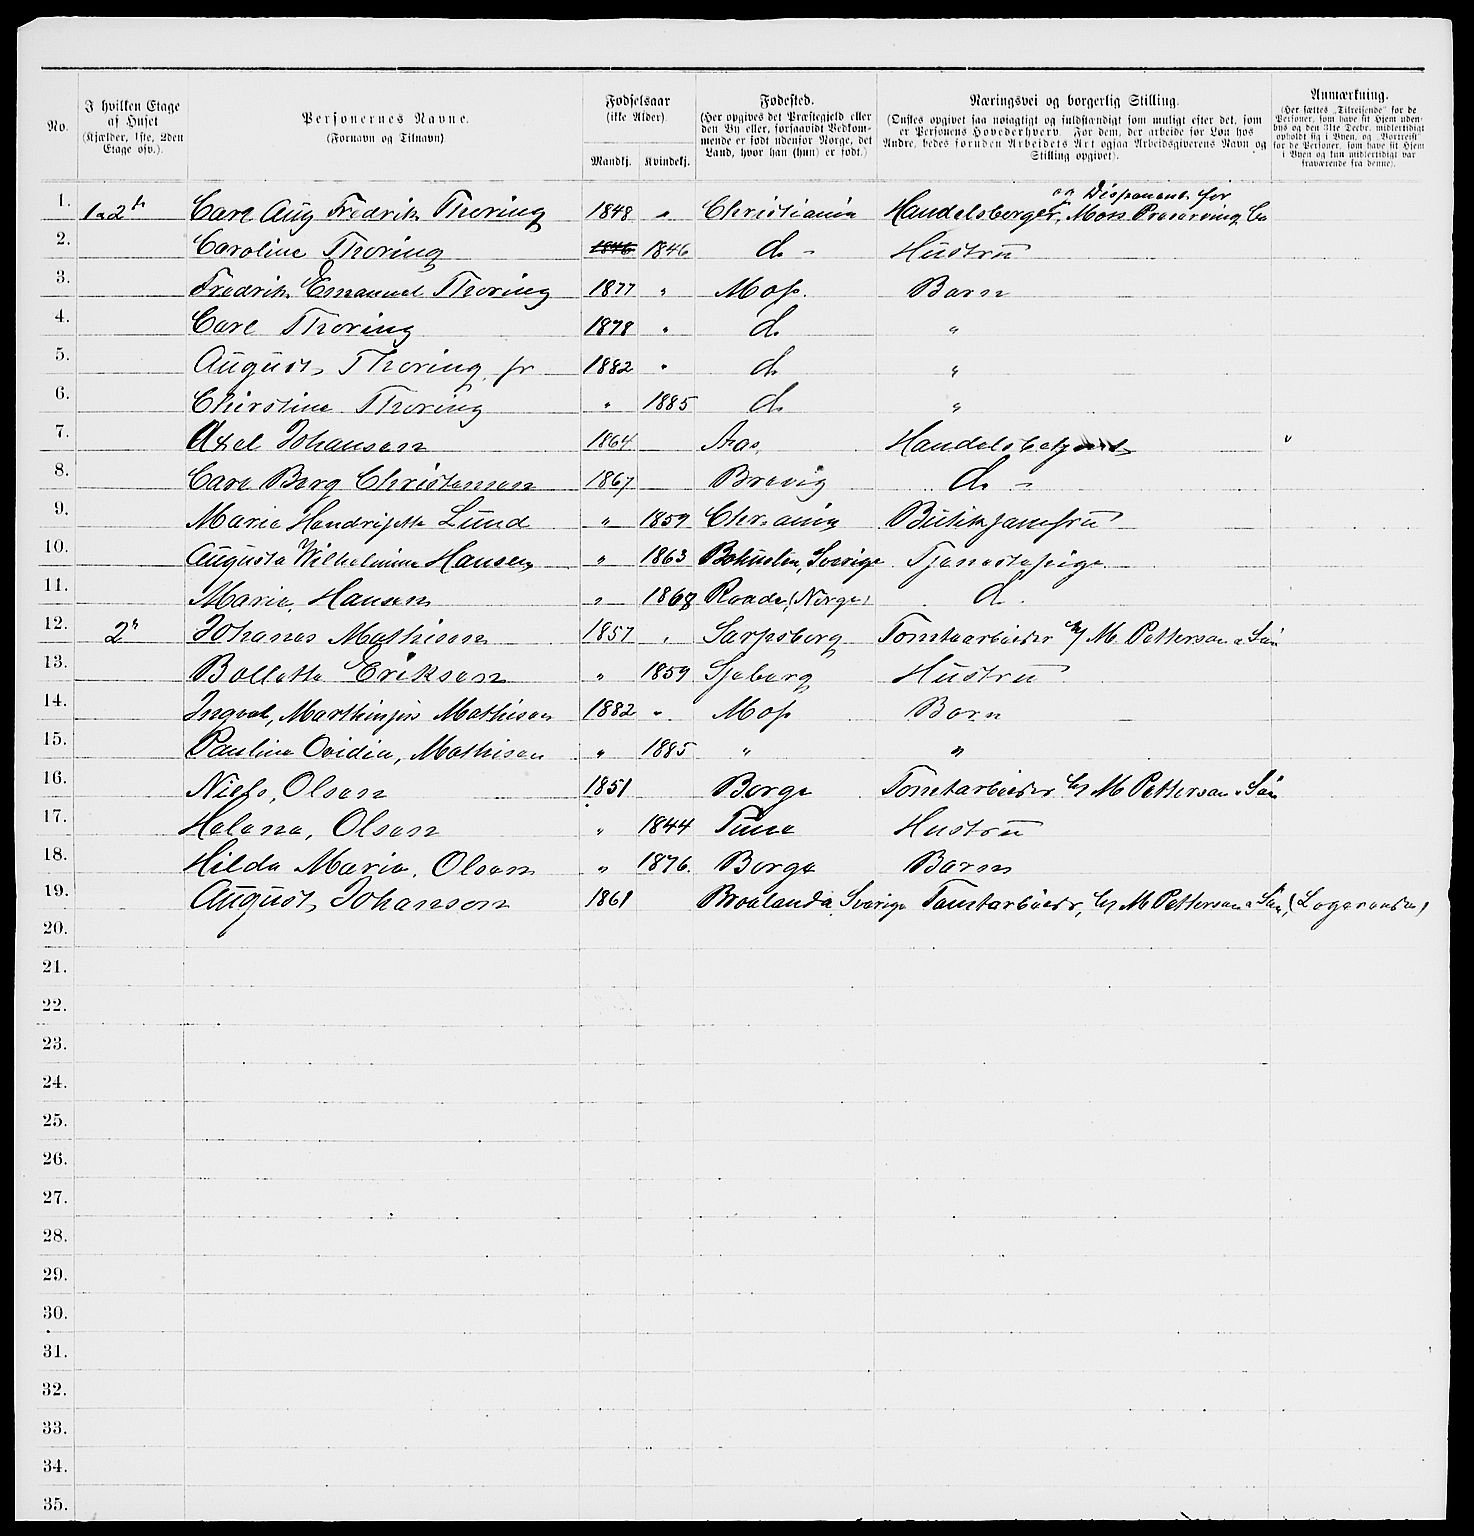 No.
I hvilken Etage
af Huset
(Kjælder, 1ste, 2den
Etage osv.).
Personernes Navne.
(Fornavn og Tilnavn)
Fødselsaar
(ikke Alder).
Mandkj. Kvindekj.
Fødested.
(Her opgives det Præstegjeld eller
den By eller, forsaavidt Vedkom-
mende er født udenfor Norge, det
Land, hvor han (hun) er født.)
Næringsvei og borgerlig Stilling.
(Ønskes opgivet saa nøiagtigt og fuldstændigt som muligt efter det, som
er Personens Hovederhverv. For dem, der arbeide for Løn hos
Andre, bedes foruden Arbeidets Art ogsaa Arbeidsgiverens Navn og
Stilling opgivet).
Anmærkning.
(Her sættes "Tilreisende" for de
Personer, som have sit Hjem uden-
bys og den 31te Decbr. midlertidigt
opholdt sig i Byen, og "Bortreist"
for de Personer, som have sit Hjem
i Byen og kun midlertidigt var
fraværende fra denne).
og Disponent for
1. 1 & 2 Carl Aug Fredrik Thoring 1848 " Christiania Handelsborger, Moss Preserving Co
2. Caroline Thoring 1846 1846 do - Hustru
3. Fredrik Emanuel Thoring 1877 " Moss. Barn
4. Carl Thoring 1878 " do "
5. August Thoring jr 1882 " do "
6. Christine Thoring " 1885 do "
7. Axel Johansen 1864 Aas, "
8. Carl Berg Christensen 1867 Brevig do -
9. Marie Hendrijette Lund " 1859 Chr.ania Butikjomfru
10. Augusta Wilhelmine Hansen " 1863 Bohuslen, Sverige Tjenestepige
11. Marie, Hansen " 1868 Raade, (Norge) do.
12. 2" Johanes Mathisen 1857 " Sarpsborg Tomtearbeider h/ M. Petterson & Søn
13. Bollette Eriksen " 1859 Sjeberg Hustru
14. Ingval, Marthinjus Mathisen 1882 " Moss Barn
15. Pauline Ovidia, Mathisen " 1885 " "
16. Niels, Olsen 1851 Borge Tomtarbeider h/ M Petterson & Søn
17. Helene, Olsen " 1844 Tune Hustru
18. Hilda Marie, Olsen " 1876. Borge Barn
19. August, Johanson 1861 Broalanda, Sverige Tomtarbeidr, h/ M Petterson & Søn, (Logerende)
20.
21.
22.
23.
24.
25.
26.
27.
28.
29.
30.
31.
32.
33.
34.
35.